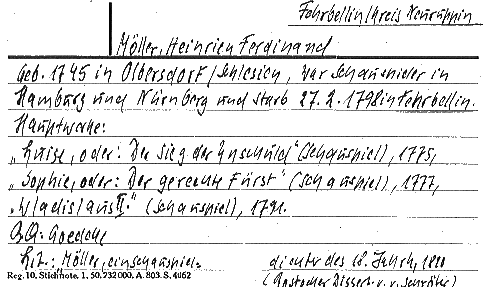 Fehrbellin/Kreis Neuruppin
Möller, Heinrich Ferdinand
Geb. 1745 in Olbersdorf/Schlesien, war Schauspieler in
Hamburg und Nürnberg und starb 27.2.1798 in Fehrbellin.
Hauptwerke:
„Luise, oder: Der Sieg der Unschuld" (Schauspiel), 1775,
„Sophie, oder: Der gerechte Fürst" (Schauspiel), 1777,
„Wladislaus II." (Schauspiel), 1791.
Goedeke
Lit.: Möller, ein Schauspiel-
dichter des 18. Jahrh.,
Reg. 10, Stichnote. 1, 50, 232000, A. 803. S. 4062
(Rostocker Dissert. v.